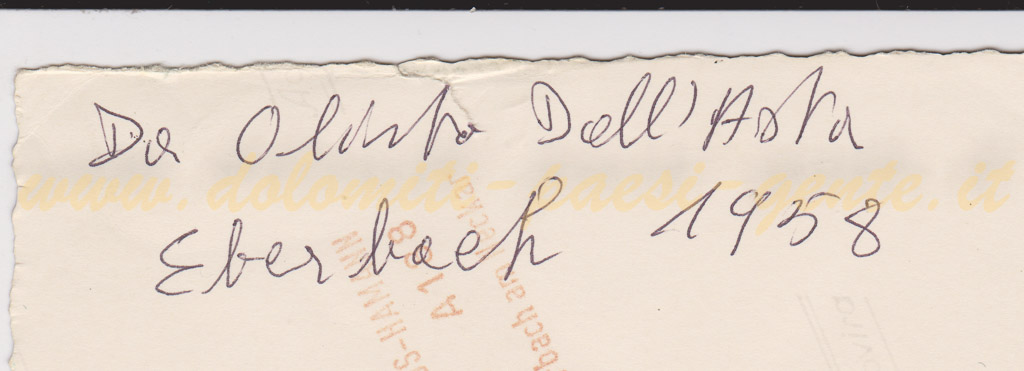 Da Olinto Dall'Asta
www.dolomiti-paesi-gente.it
Eberbach 1958
-HAMANN
A198
bach am Neckar